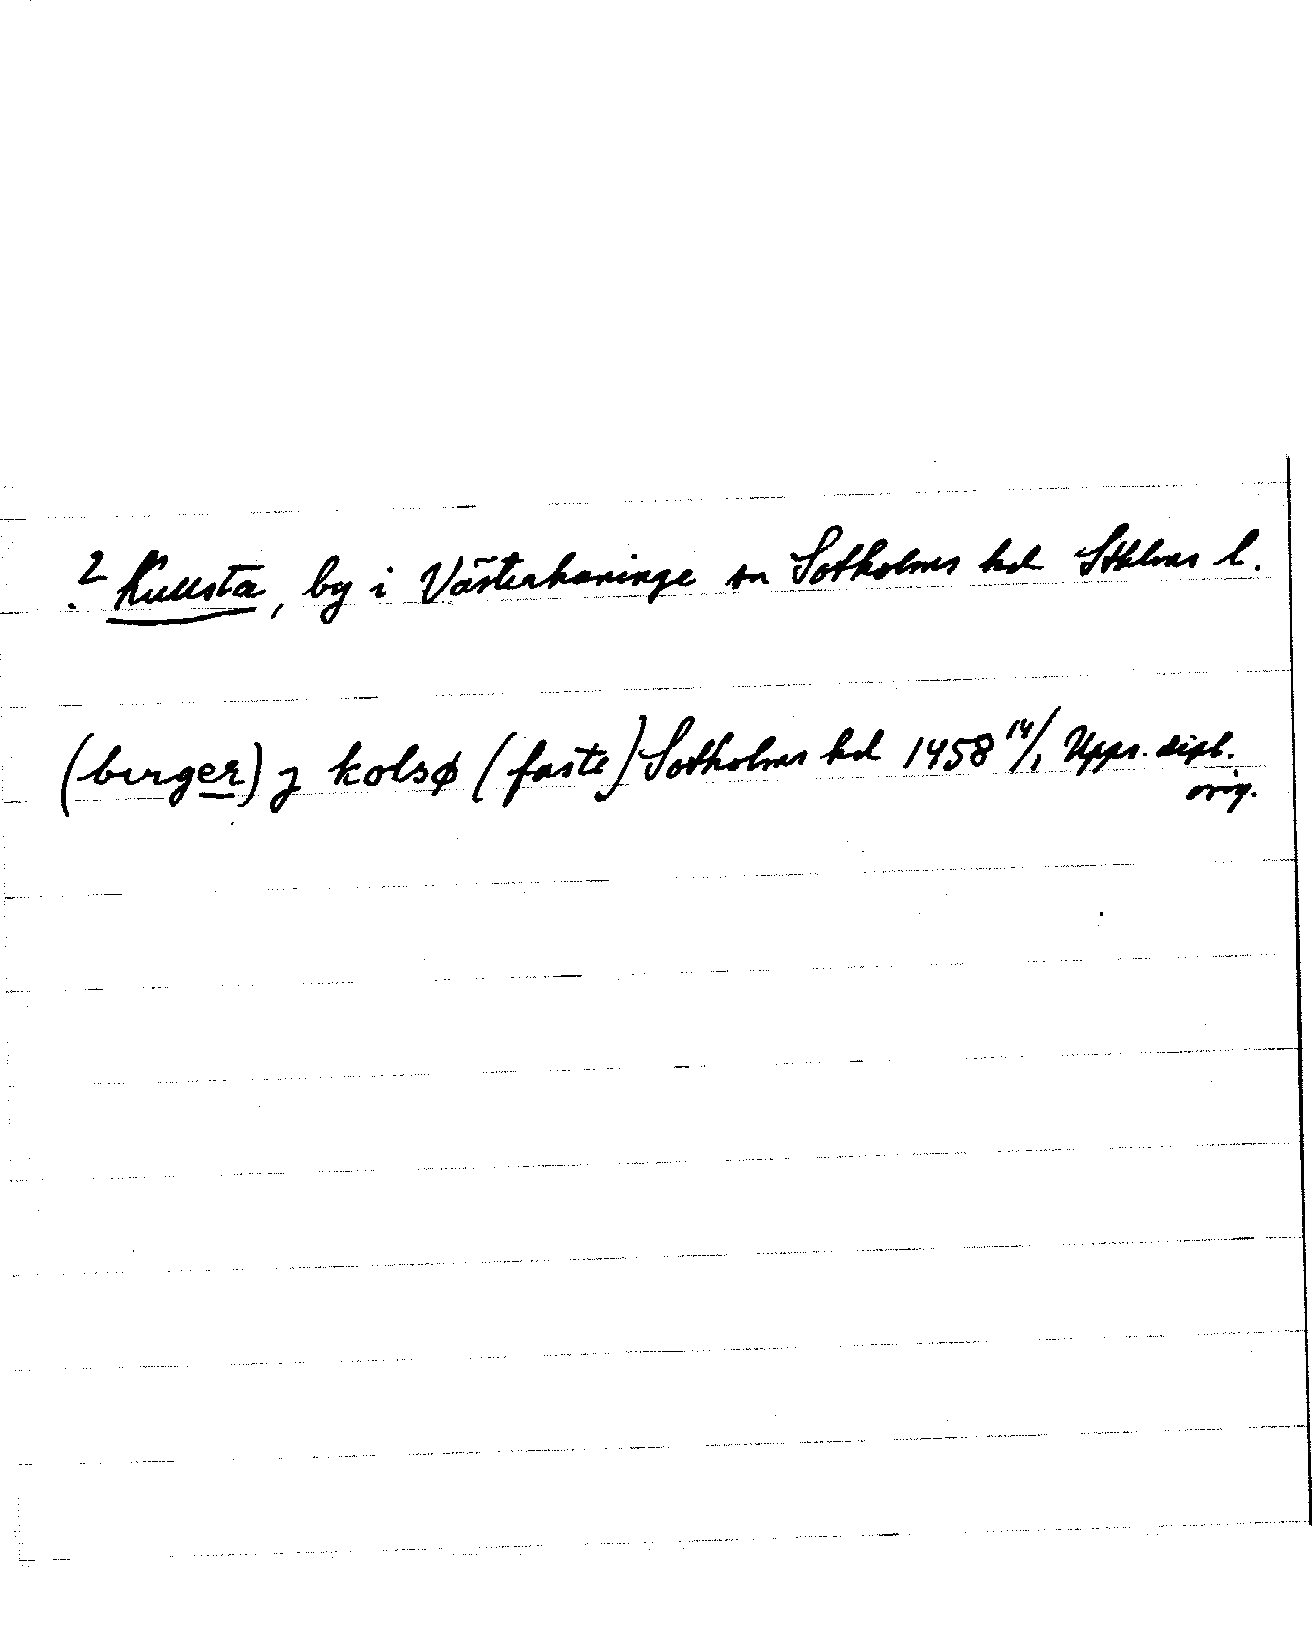 ? Kullsta, by i Västerhaninge sn Sotholms hd Sthlms l.
(birger) j kolsø (faste) Sotholms hd 1458 14/1 Upps. dipl.
orig.